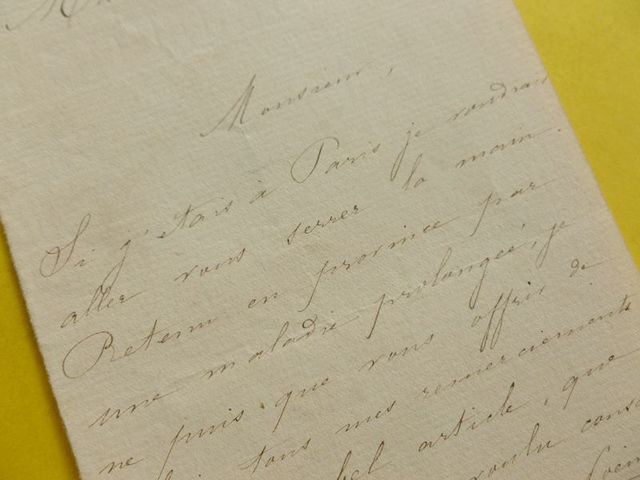 Monsieur,
Si j'étais à Paris je voudrais
aller vous serrer la main.
Retenu en province par
une maladie prolongée, je
ne puis que vous offrir de
tous mes remerciements
bel article, que
voulu